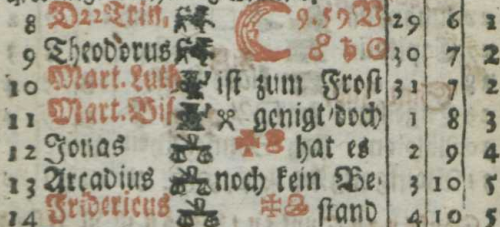 8 D22Trin, ☾ 9.59 V 29 6 3
9 Theodorus ☍ ♄ ☉ 30 7 2
10 Mart. Luth ist zum Frost 31 7 2
11 Mart. Bis genigt/doch 1 8 3
12 Jonas hat es 2 9 4
13 Arcadius noch kein Be- 3 10 5
14 Fridericus stand 4 10 5